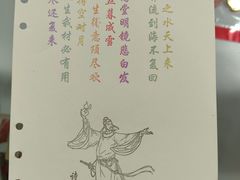 之水天上来
流到海不复回
堂明镜悲白发
丝暮成雪
生得意须尽欢
将空对月
生我材必有用
尽还复来
诗